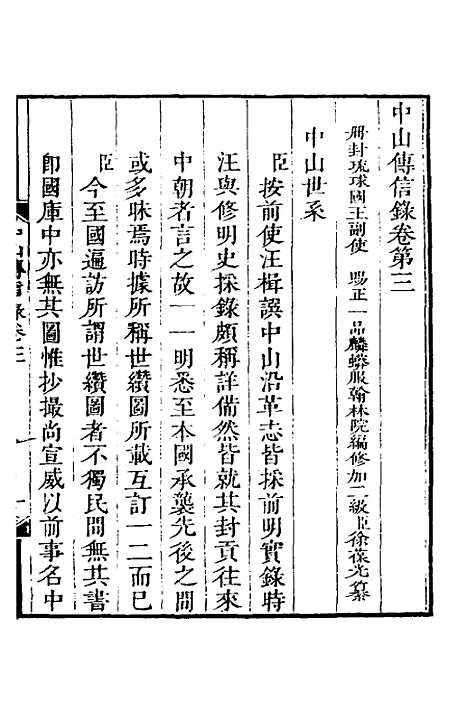 中山傳信錄卷第三
冊封琉球國王副使 賜正一品麟蟒服翰林院編修加二級臣徐葆光纂
中山世系
臣按前使汪楫譔中山沿革志皆採前明實錄時
汪與修明史採錄頗稱詳備然皆就其封貢往來
中朝者言之故一一明悉至本國承襲先後之間
或多昧焉時據所稱世纘圖所載互訂一二而已
臣今至國遍訪所謂世纘圖者不獨民間無其書
卽國庫中亦無其圖惟抄撮尚宣威以前事名中
中山傳信錄卷三
一